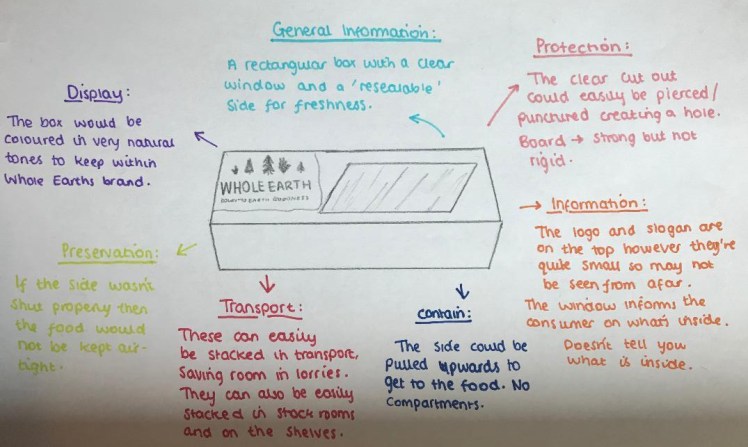 General Information:
A rectangular box with a clear
window and a 'resealable'
side for freshness.
Protection:
The clear cut out
could easily be pierced/
punctured creating a hole.
Board → strong but not
rigid.
Display:
The box would be
coloured in very natural
tones to keep within
Whole Earths brand.
WHOLE EARTH
DOWN TO EARTH GOODNESS
Information:
The logo and slogan are
on the top however they're
quite small so may not
be seen from afar.
The window informs the
consumer on whats inside.
Doesn't tell you
what is inside.
Preservation:
If the side wasn't
shut properly then
the food would
not be kept air-
tight.
Transport:
These can easily
be stacked in transport,
saving room in lorries.
They can also be easily
stacked in stock rooms
and on the shelves.
Contain:
The side could be
pulled upwards to
get to the food. No
compartments.